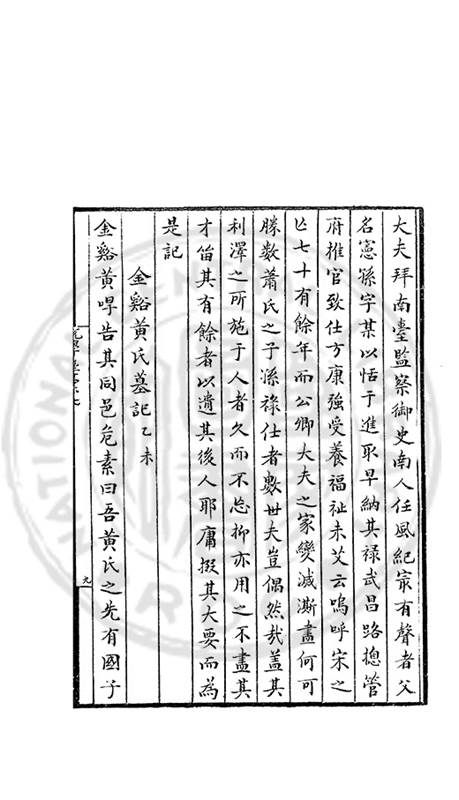 大夫拜南臺監察御史南人任風紀㝡有聲者父
名憲孫字某以恬于進取早納其祿武昌路摠管
府推官致仕方康強受養福祉未艾云嗚呼宋之
亡七十有餘年而公卿大夫之家變滅澌盡何可
勝數蕭氏之子孫祿仕者數世夫豈偶然哉蓋其
利澤之所施于人者久而不忘抑亦用之不盡其
才畱其有餘者以遺其後人耶庸掇其大要而為
是記
金谿黃氏墓記乙未
金谿黃㖟告其同邑危素曰吾黃氏之先有國子
九
NATIONAL CENTRAL LIBRARY